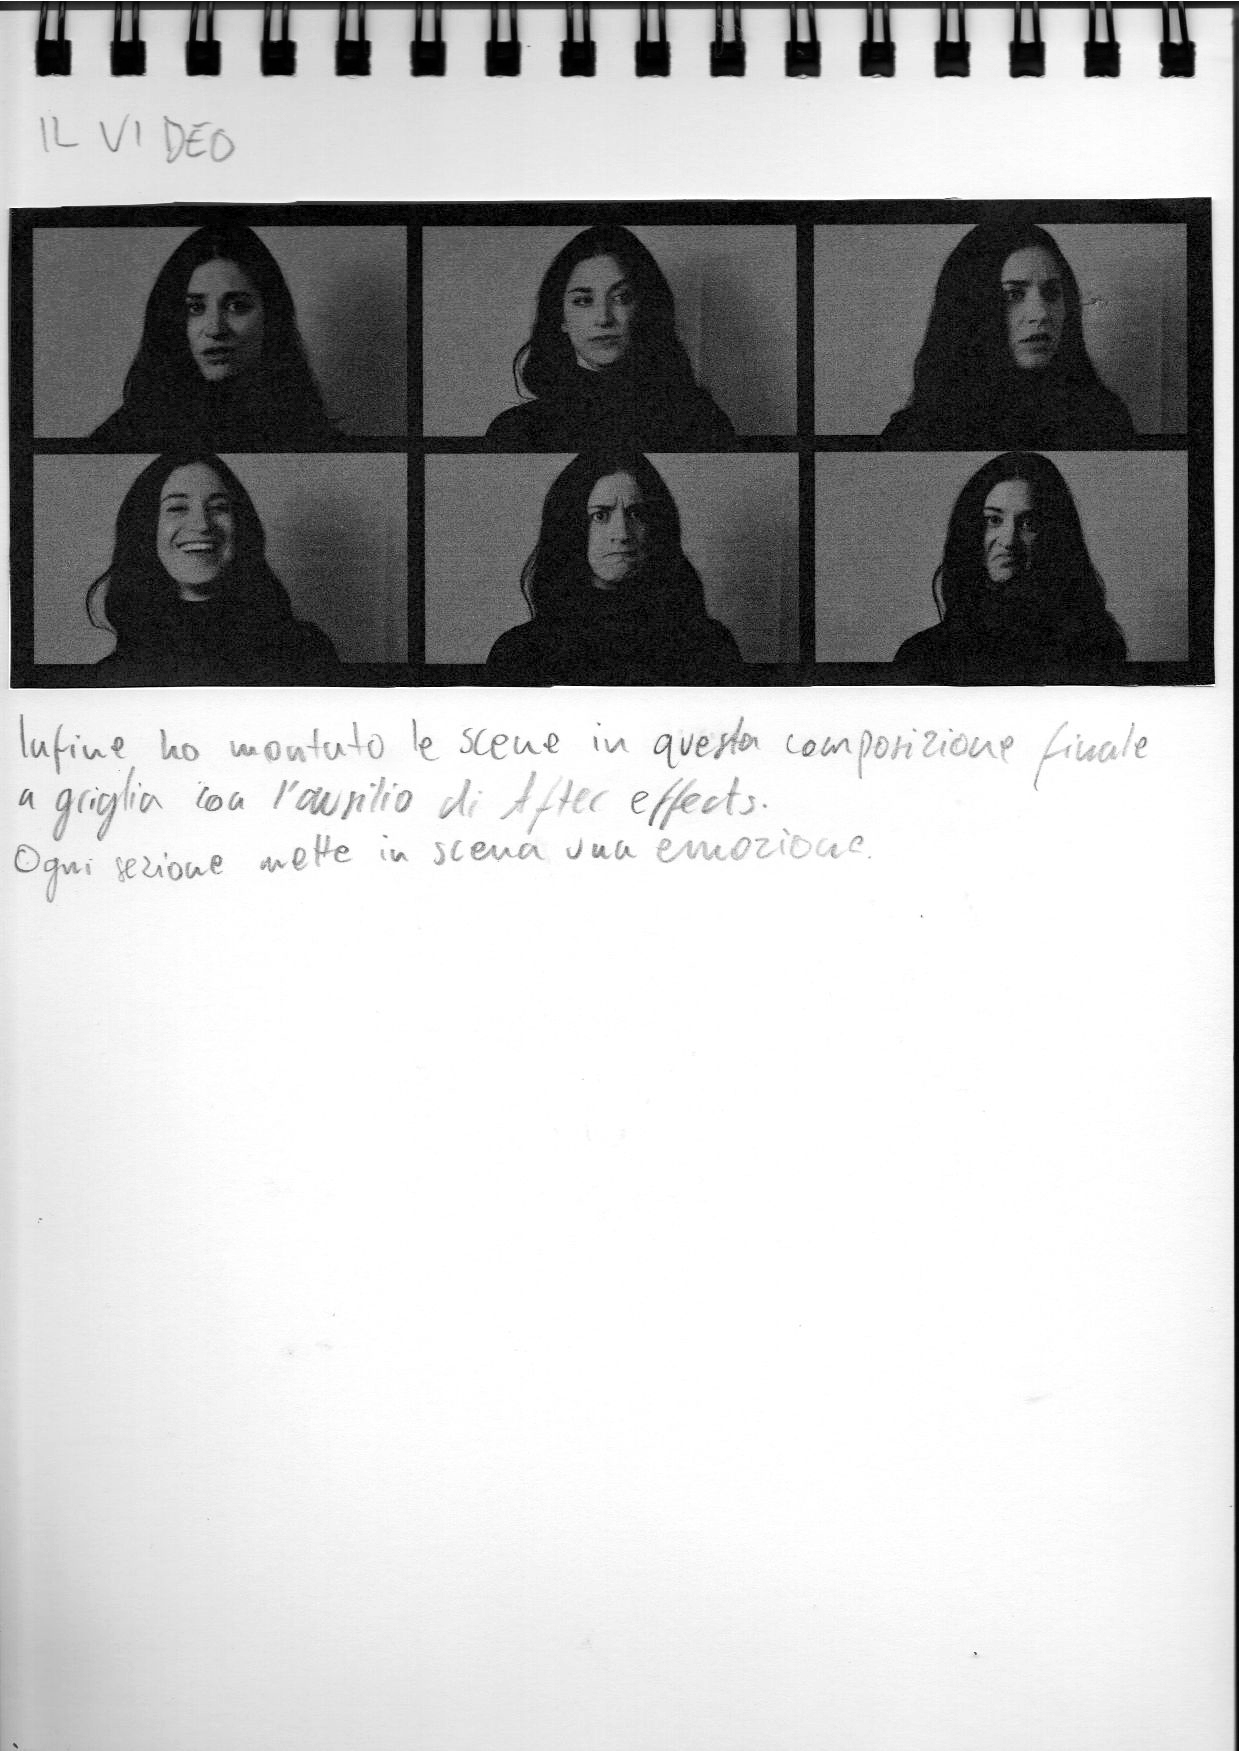 IL VIDEO
Infine ho montato le scene in questa composizione finale
a griglia con l'ausilio di After effects.
Ogni sezione mette in scena una emozione.